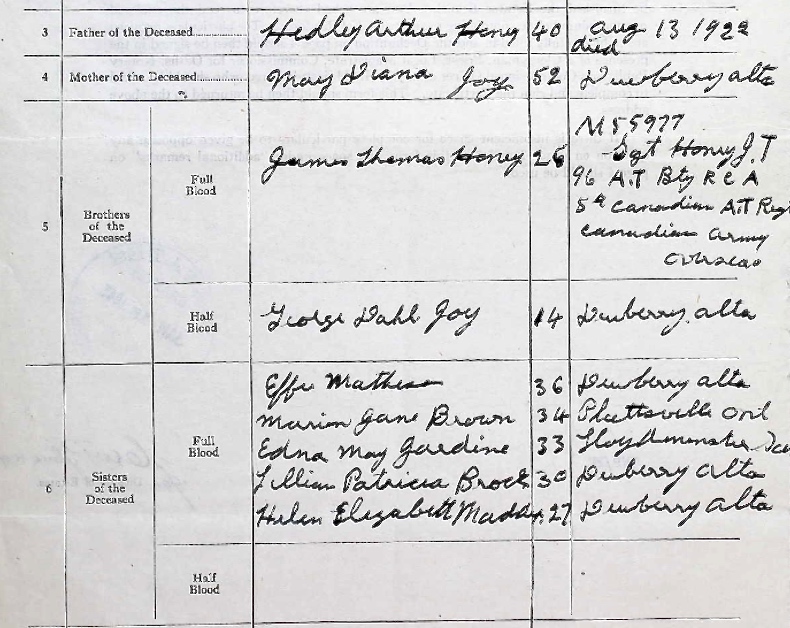 3 Father of the Deceased Hedley Arthur Honey 40 Aug 13 1922
died
4 Mother of the Deceased May Diana Joy 52 Dewberry alta
5 Brothers of the Deceased
Full Blood
M55977
James Thomas Honey 26 Sgt Honey J. T
96 A.T Bty R C A
5th Canadian A.T Regt
Canadian Army
Overseas
Half Blood George Dahl Joy 14 Dewberry, alta
6 Sisters of the Deceased
Full Blood
Effie Matheson 36 Dewberry alta
Marion Jane Brown 34 Plattsville Ont
Edna May Jardine 33 Lloydminster
Lillian Patricia Brock 30 Dewberry Alta
Helen Elizabeth 27 Dewberry Alta
Half Blood